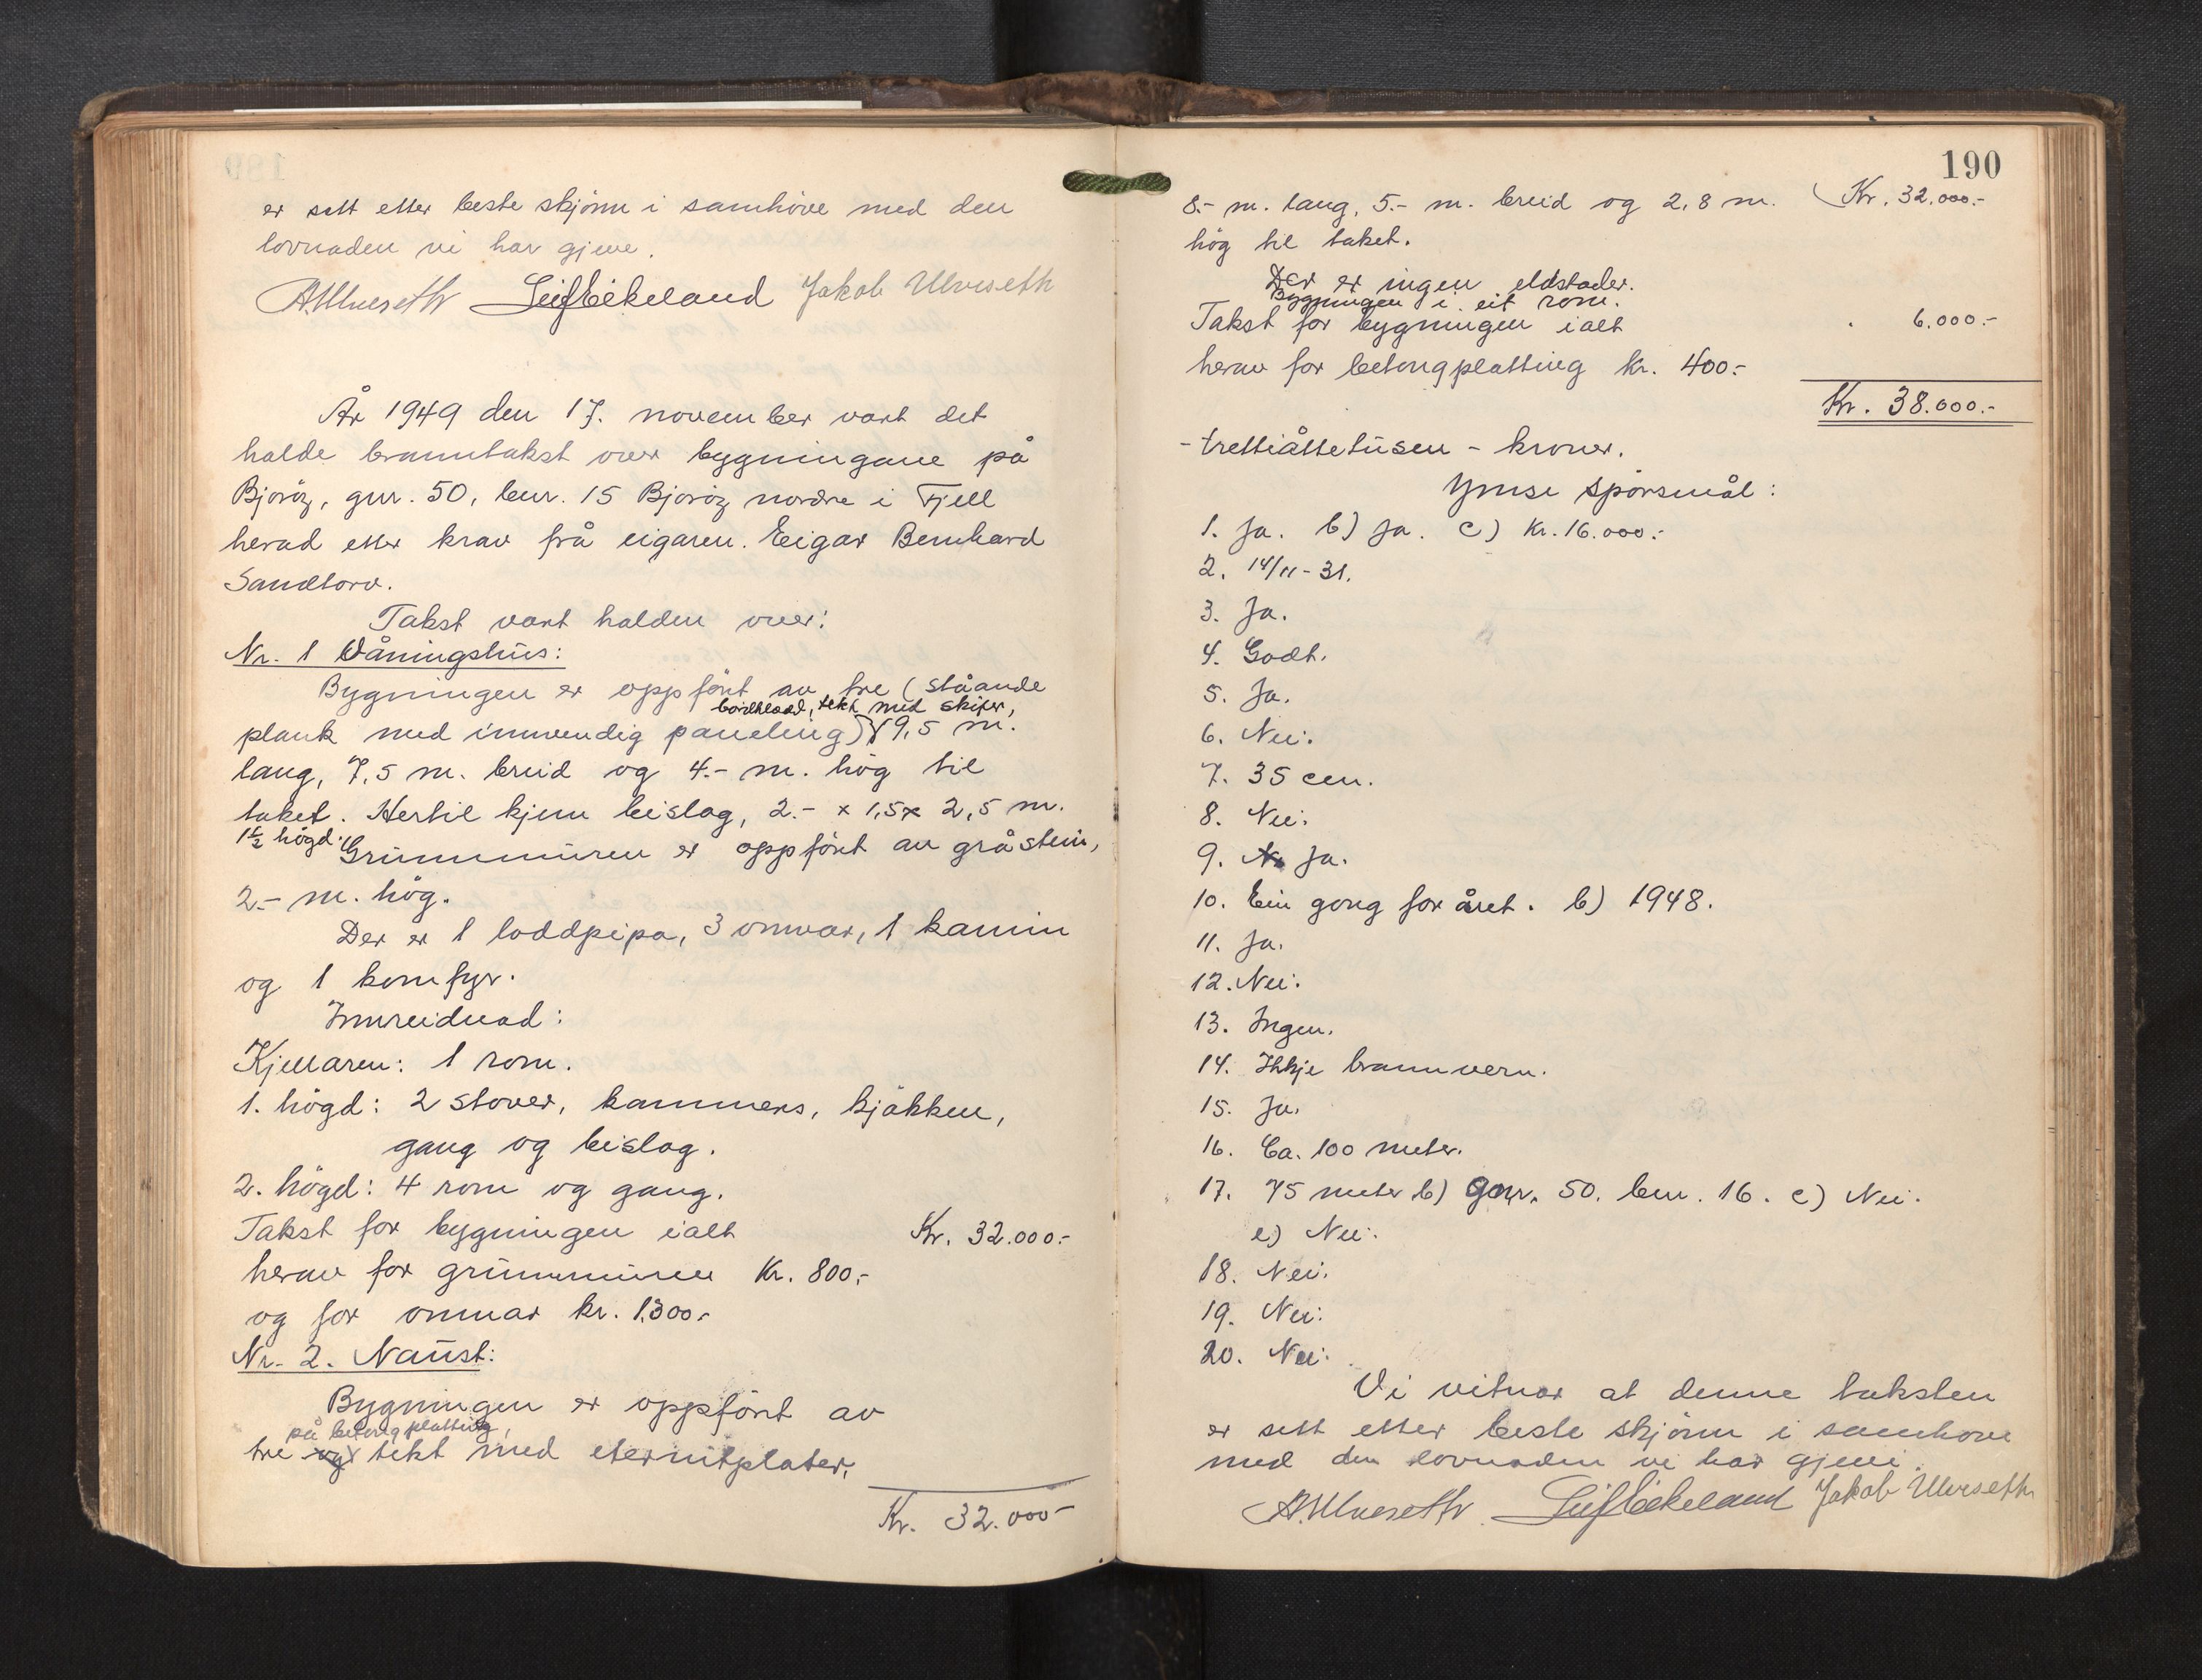 er sett etter beste skjönn i samhöve med den
lovnaden vi har gjeve.
A. Ulveseth Leif Eikeland Jakob Ulveseth
År 1949 den 17. november vart det
halde branntakst over bygningane på
Bjoröy, gnr. 50, bnr. 15 Bjoröy nordre i Fjell
herad etter krav frå eigaren. Eigar Bernhard
Sandtorv.
Takst vart halden over:
Nr. 1 Våningshus:
Bygningen er oppfönt av tre (ståande
bordkledd, tekt med skifer,
plank med innvendig paneling) 9,5 m.
lang, 7,5 m. breid og 4.- m. hög til
taket. Hertil kjem beislag, 2.- x 1,5 x 2,5 m.
1 1/2 högd.
Grunnmuren er oppfönt av gråstein,
2.- m. hög.
Der er 1 loddpipa, 3 omnar, 1 kamin
og 1 komfyr.
Innreidnad:
Kjellaren: 1 rom.
1. högd: 2 stover, kammers, kjökken,
gang og beislag.
2. högd: 4 rom og gang.
Takst for bygningen ialt Kr. 32.000.-
herav for grunnmuren Kr. 800,-
og for omnar kr. 1.300.-
Nr. 2. Naust:
Bygningen er oppfönt av
på betongplatting,
tre og tekt med eternitplater,
Kr. 32.000-
190
8.- m. lang, 5.- m. breid og 2,8 m. Kr. 32.000.-
hög til taket.
Der er ingen eldstader.
Bygningen i eit rom.
Takst for bygningen ialt 6.000.-
herav for betongplatting kr. 400.-
Kr. 38.000.-
- trettiåttetusen - kroner.
Ymse spörsmål:
1. Ja. b) Ja. c) Kr. 16.000.-
2. 14/11-31.
3. Ja.
4. Godt.
5. Ja.
6. Nei.
7. 35 cm.
8. Nei.
9. Ja.
10. Ein gong for året. b) 1948.
11. Ja.
12. Nei.
13. Ingen.
14. Ikkje brannvern.
15. Ja.
16. Ca. 100 meter.
17. 75 meter b) gnr. 50. bnr. 16. c) Nei.
e) Nei.
18. Nei.
19. Nei.
20. Nei.
Vi vitnar at denne taksten
er sett etter beste skjönn i samhöve
med den lovnaden vi har gjeve.
A. Ulveseth Leif Eikeland Jakob Ulveseth